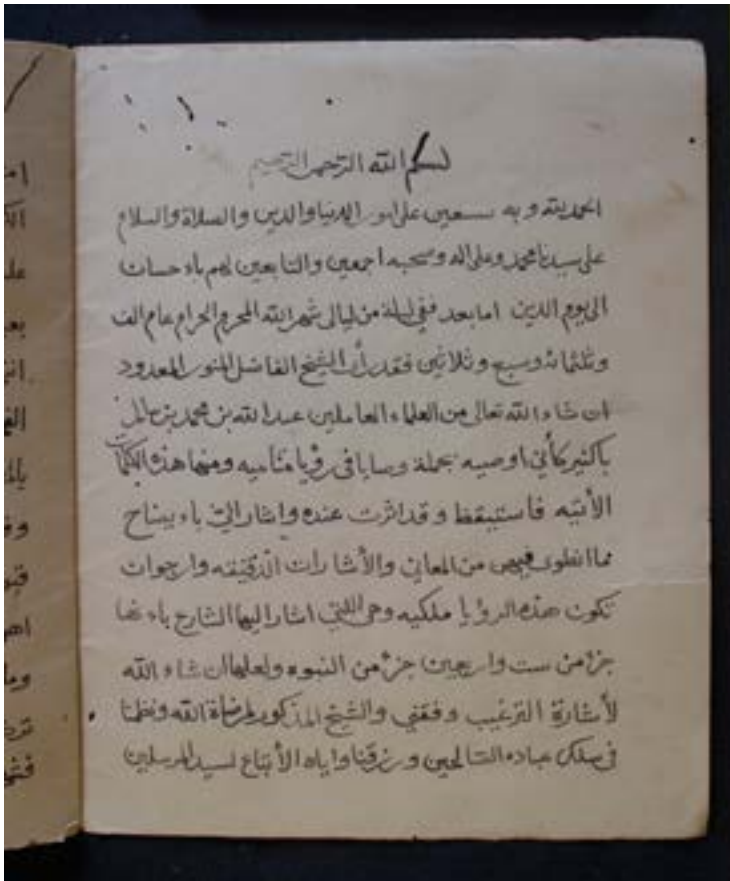 بسم الله الرحمن الرحيم
الحمد لله و به نستعين على امور الدنيا والدين والصلاة والسلام
على سيدنا محمد وعلى اله وصحبه اجمعين والتابعين لهم باءحسان
الى يوم الدين اما بعد ففي ليلة من ليالى شهر الله المحرم الحرام عام الف
وثلثمائة وسبع وثلاثين فقد رأى الشيخ الفاضل المنور المعدود
ان شاء الله تعالى من العلماء العاملين عبد الله بن محمد بن سالم
باكثير كأني اوصيه بجملة وصايا في رؤيا مناميه ومنها هذه الكلمات
الأتيه فاستيقظ وقد اثرت عنده واشار الي باء يضاح
مما انطوى فيهن من المعاني والأشارات الدقيقه وارجوان
تكون هذه الرؤيا ملكيه وهي اللتي اشار اليها الشارع باءنها
جزء من ست واربعين جزء من النبوه ولعلها ان شاء الله
لأشارة الترغيب وفقني والشيخ المذكور لمرضاة الله ونظمنا
في سلك عباده الصالحين ورزقنا واياه الأتباع لسيد المرسلين